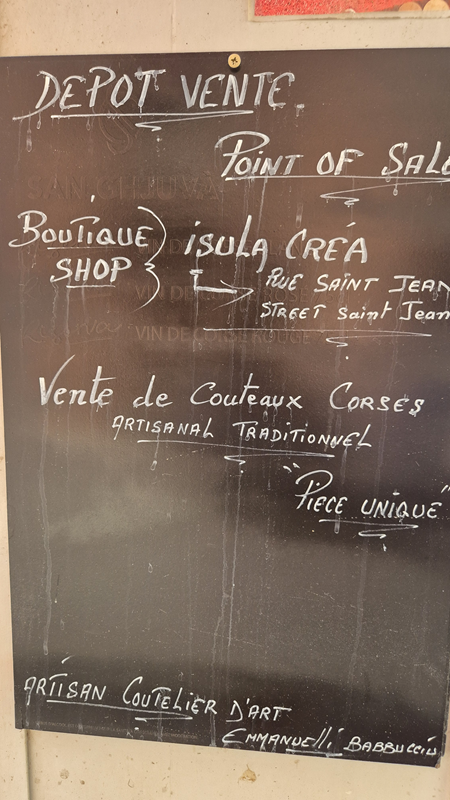 DEPOT VENTE
POINT OF SALE
BOUTIQUE
SHOP
isula CRÉA
RUE SAINT JEAN
STREET Saint Jean
VIN DE CORSE ROUGE
Vente de Couteaux CORSES
ARTISANAL TRADITIONNEL
"PIECE UNIQUE"
ARTISAN COUTELIER D'ART
EMMANUElli BABBUCCIU